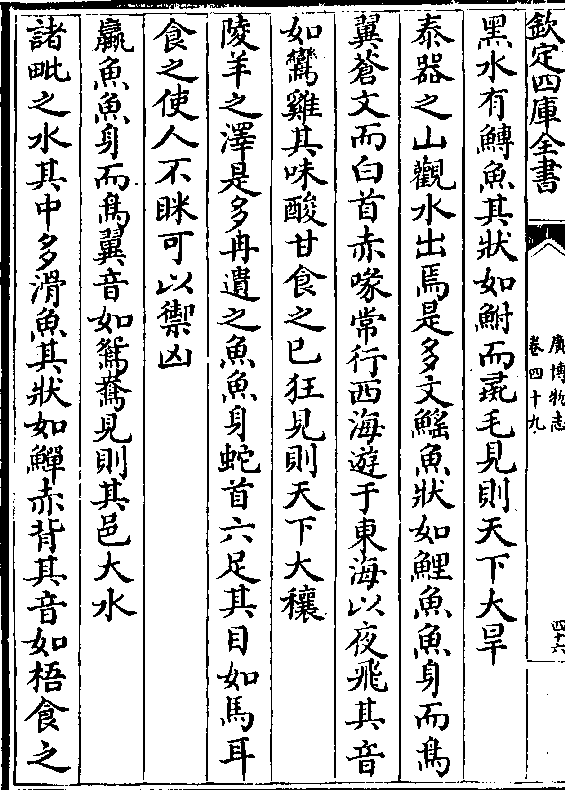 欽定四庫全書
廣博物志
卷四十九
四十六
黑水有鱄魚其狀如鮒而彘毛見則天下大旱
泰器之山觀水出焉是多文鰩魚狀如鯉魚魚身而鳥
翼蒼文而白首赤喙常行西海遊于東海以夜飛其音
如鸞雞其味酸甘食之已狂見則天下大穰
陵羊之澤是多冉遺之魚魚身蛇首六足其目如馬耳
食之使人不眯可以禦凶
鸁魚魚身而鳥翼音如鴛鴦見則其邑大水
諸毗之水其中多滑魚其狀如鱓赤背其音如梧食之